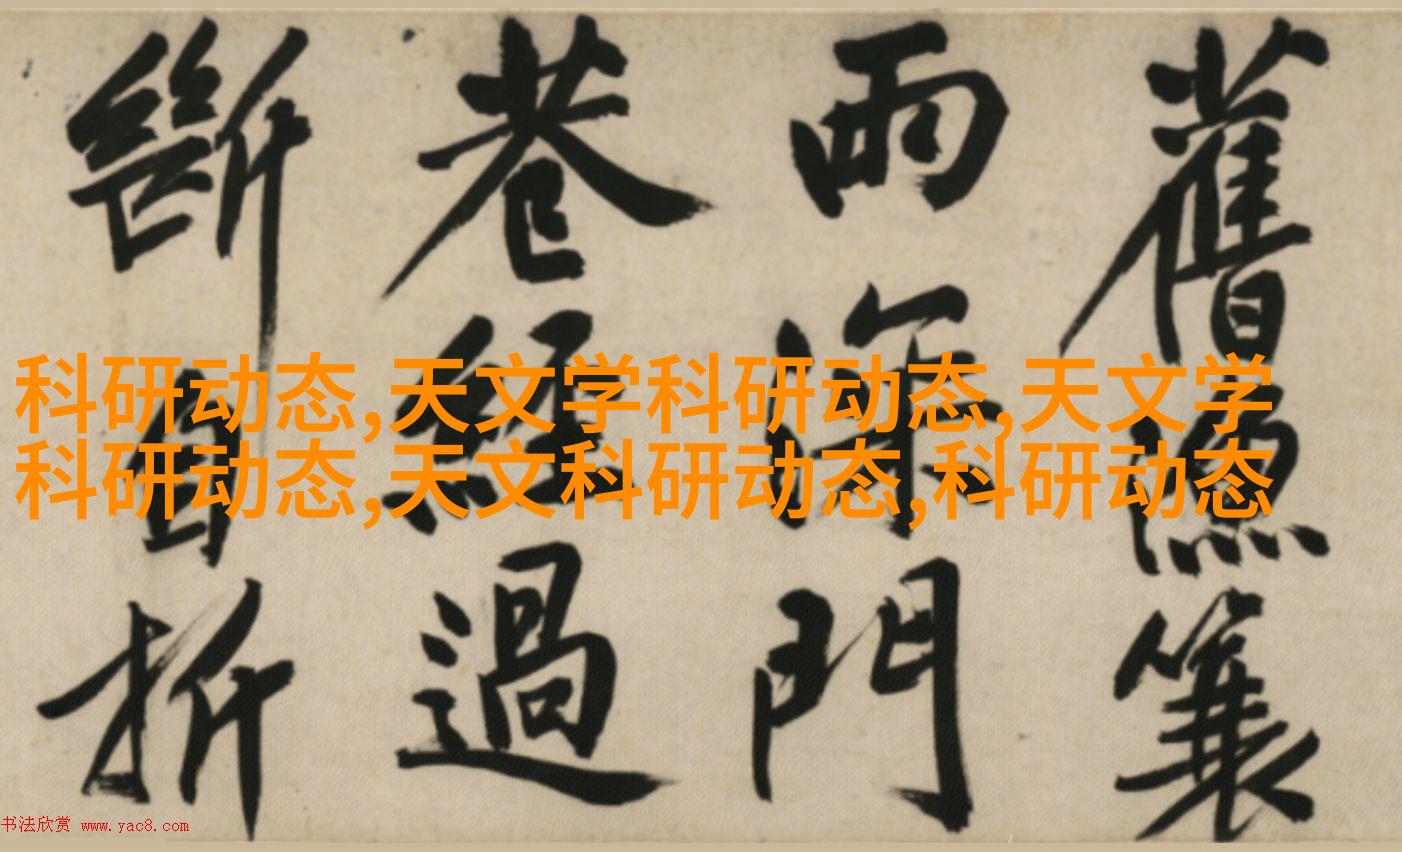 科研动态,天文学科研动态,天文学
科研动态,天文科研动态,科研动态
舊簑
雨深門
巷經過
斷自折
书法欣赏 www.yac8.com